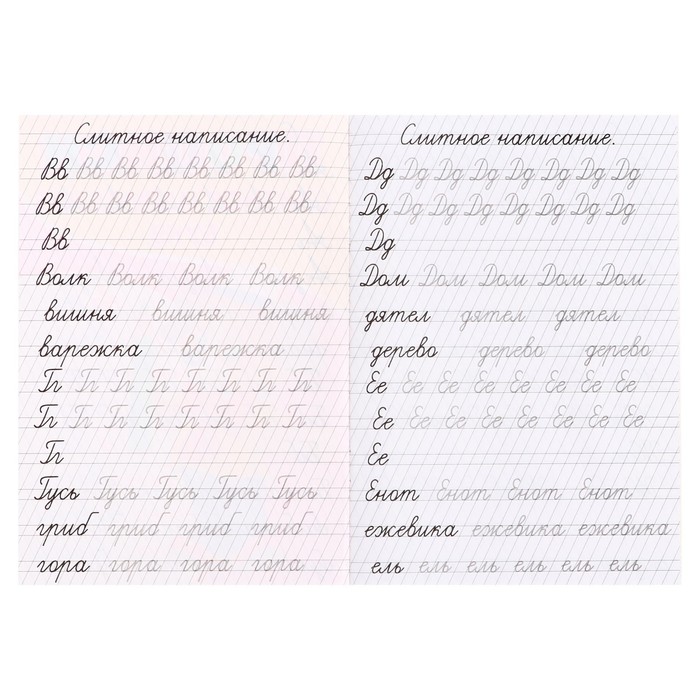 Слитное написание.
Вв Вв Вв Вв Вв Вв Вв Вв
Вв Вв Вв Вв Вв Вв Вв Вв
Вв
Волк Волк Волк Волк
вишня вишня вишня
варежка варежка
Гг Гг Гг Гг Гг Гг Гг Гг
Гг Гг Гг Гг Гг Гг Гг Гг
Гг
Гусь Гусь Гусь Гусь Гусь
гриб гриб гриб гриб
гора гора гора гора
Слитное написание.
Дд Дд Дд Дд Дд Дд Дд Дд
Дд Дд Дд Дд Дд Дд Дд Дд
Дд
Дом Дом Дом Дом Дом
дятел дятел дятел
дерево дерево дерево
Ее Ее Ее Ее Ее Ее Ее Ее
Ее Ее Ее Ее Ее Ее Ее Ее
Ее
Енот Енот Енот Енот
ежевика ежевика ежевика
ель ель ель ель ель ель